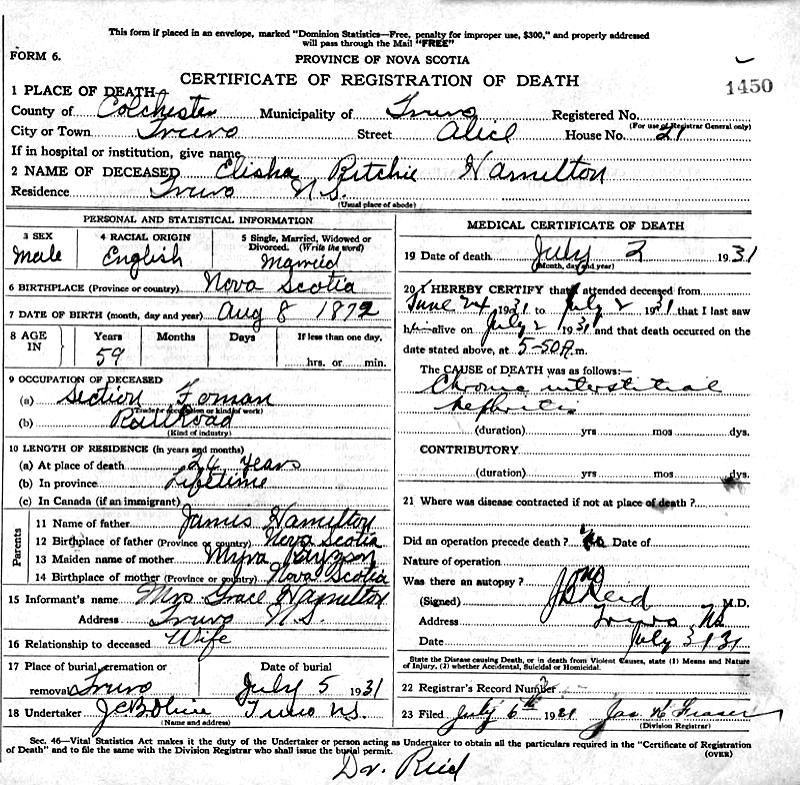 This form if placed in an envelope, marked "Dominion Statistics—Free, penalty for improper use, $300," and properly addressed
will pass through the Mail "FREE"
FORM 6.
PROVINCE OF NOVA SCOTIA
CERTIFICATE OF REGISTRATION OF DEATH
1450
1 PLACE OF DEATH
County of Colchester Municipality of Truro Registered No.
(For use of Registrar General only)
City or Town Truro Street Alice House No. 21
If in hospital or institution, give name
2 NAME OF DECEASED Elisha Ritchie Hamilton
Residence Truro N.S.
(Usual place of abode)
PERSONAL AND STATISTICAL INFORMATION
3 SEX 4 RACIAL ORIGIN 5 Single, Married, Widowed or
Divorced. (Write the word)
Male English Married
6 BIRTHPLACE (Province or country) Nova Scotia
7 DATE OF BIRTH (month, day and year) Aug 8 1872
8 AGE IN Years Months Days If less than one day,
59 hrs. or min.
9 OCCUPATION OF DECEASED
(a) Section Foman
(Trade or occupation or kind of work)
(b) Railroad
(Kind of industry)
10 LENGTH OF RESIDENCE (in years and months)
(a) At place of death 24 years
(b) In province Lifetime
(c) In Canada (if an immigrant)
Parents
11 Name of father James Hamilton
12 Birthplace of father (Province or country) Nova Scotia
13 Maiden name of mother Myra
14 Birthplace of mother (Province or country) Nova Scotia
15 Informant's name Mrs Grace Hamilton
Address Truro N.S.
16 Relationship to deceased Wife
17 Place of burial, cremation or Date of burial
removal Truro July 5 1931
18 Undertaker Truro N.S.
(Name and address)
MEDICAL CERTIFICATE OF DEATH
19 Date of death July 2 1931
(Month, day and year)
20 I HEREBY CERTIFY that I attended deceased from
June 24 1931 to July 2 1931 that I last saw
him alive on July 2 1931 and that death occurred on
date stated above, at 5-50 A.m.
The CAUSE OF DEATH was as follows:—
Chronic interstitial
nephritis
(duration) yrs mos dys.
CONTRIBUTORY
(duration) yrs. mos. dys.
21 Where was disease contracted if not at place of death ?
Did an operation precede death ? no Date of
Nature of operation
Was there an autopsy ? no
(Signed) Reid M.D.
Address Truro NS
Date July 3 1931
State the Disease causing Death, or in death from Violent Causes, state (1) Means and Nature
of Injury, (2) whether Accidental, Suicidal or Homicidal.
22 Registrar's Record Number
23 Filed July 6th 1931 Jas W Fraser
(Division Registrar)
Sec. 46—Vital Statistics Act makes it the duty of the Undertaker or person acting as Undertaker to obtain all the particulars required in the "Certificate of Registration
of Death" and to file the same with the Division Registrar who shall issue the burial permit.
(OVER)
Dr. Reid